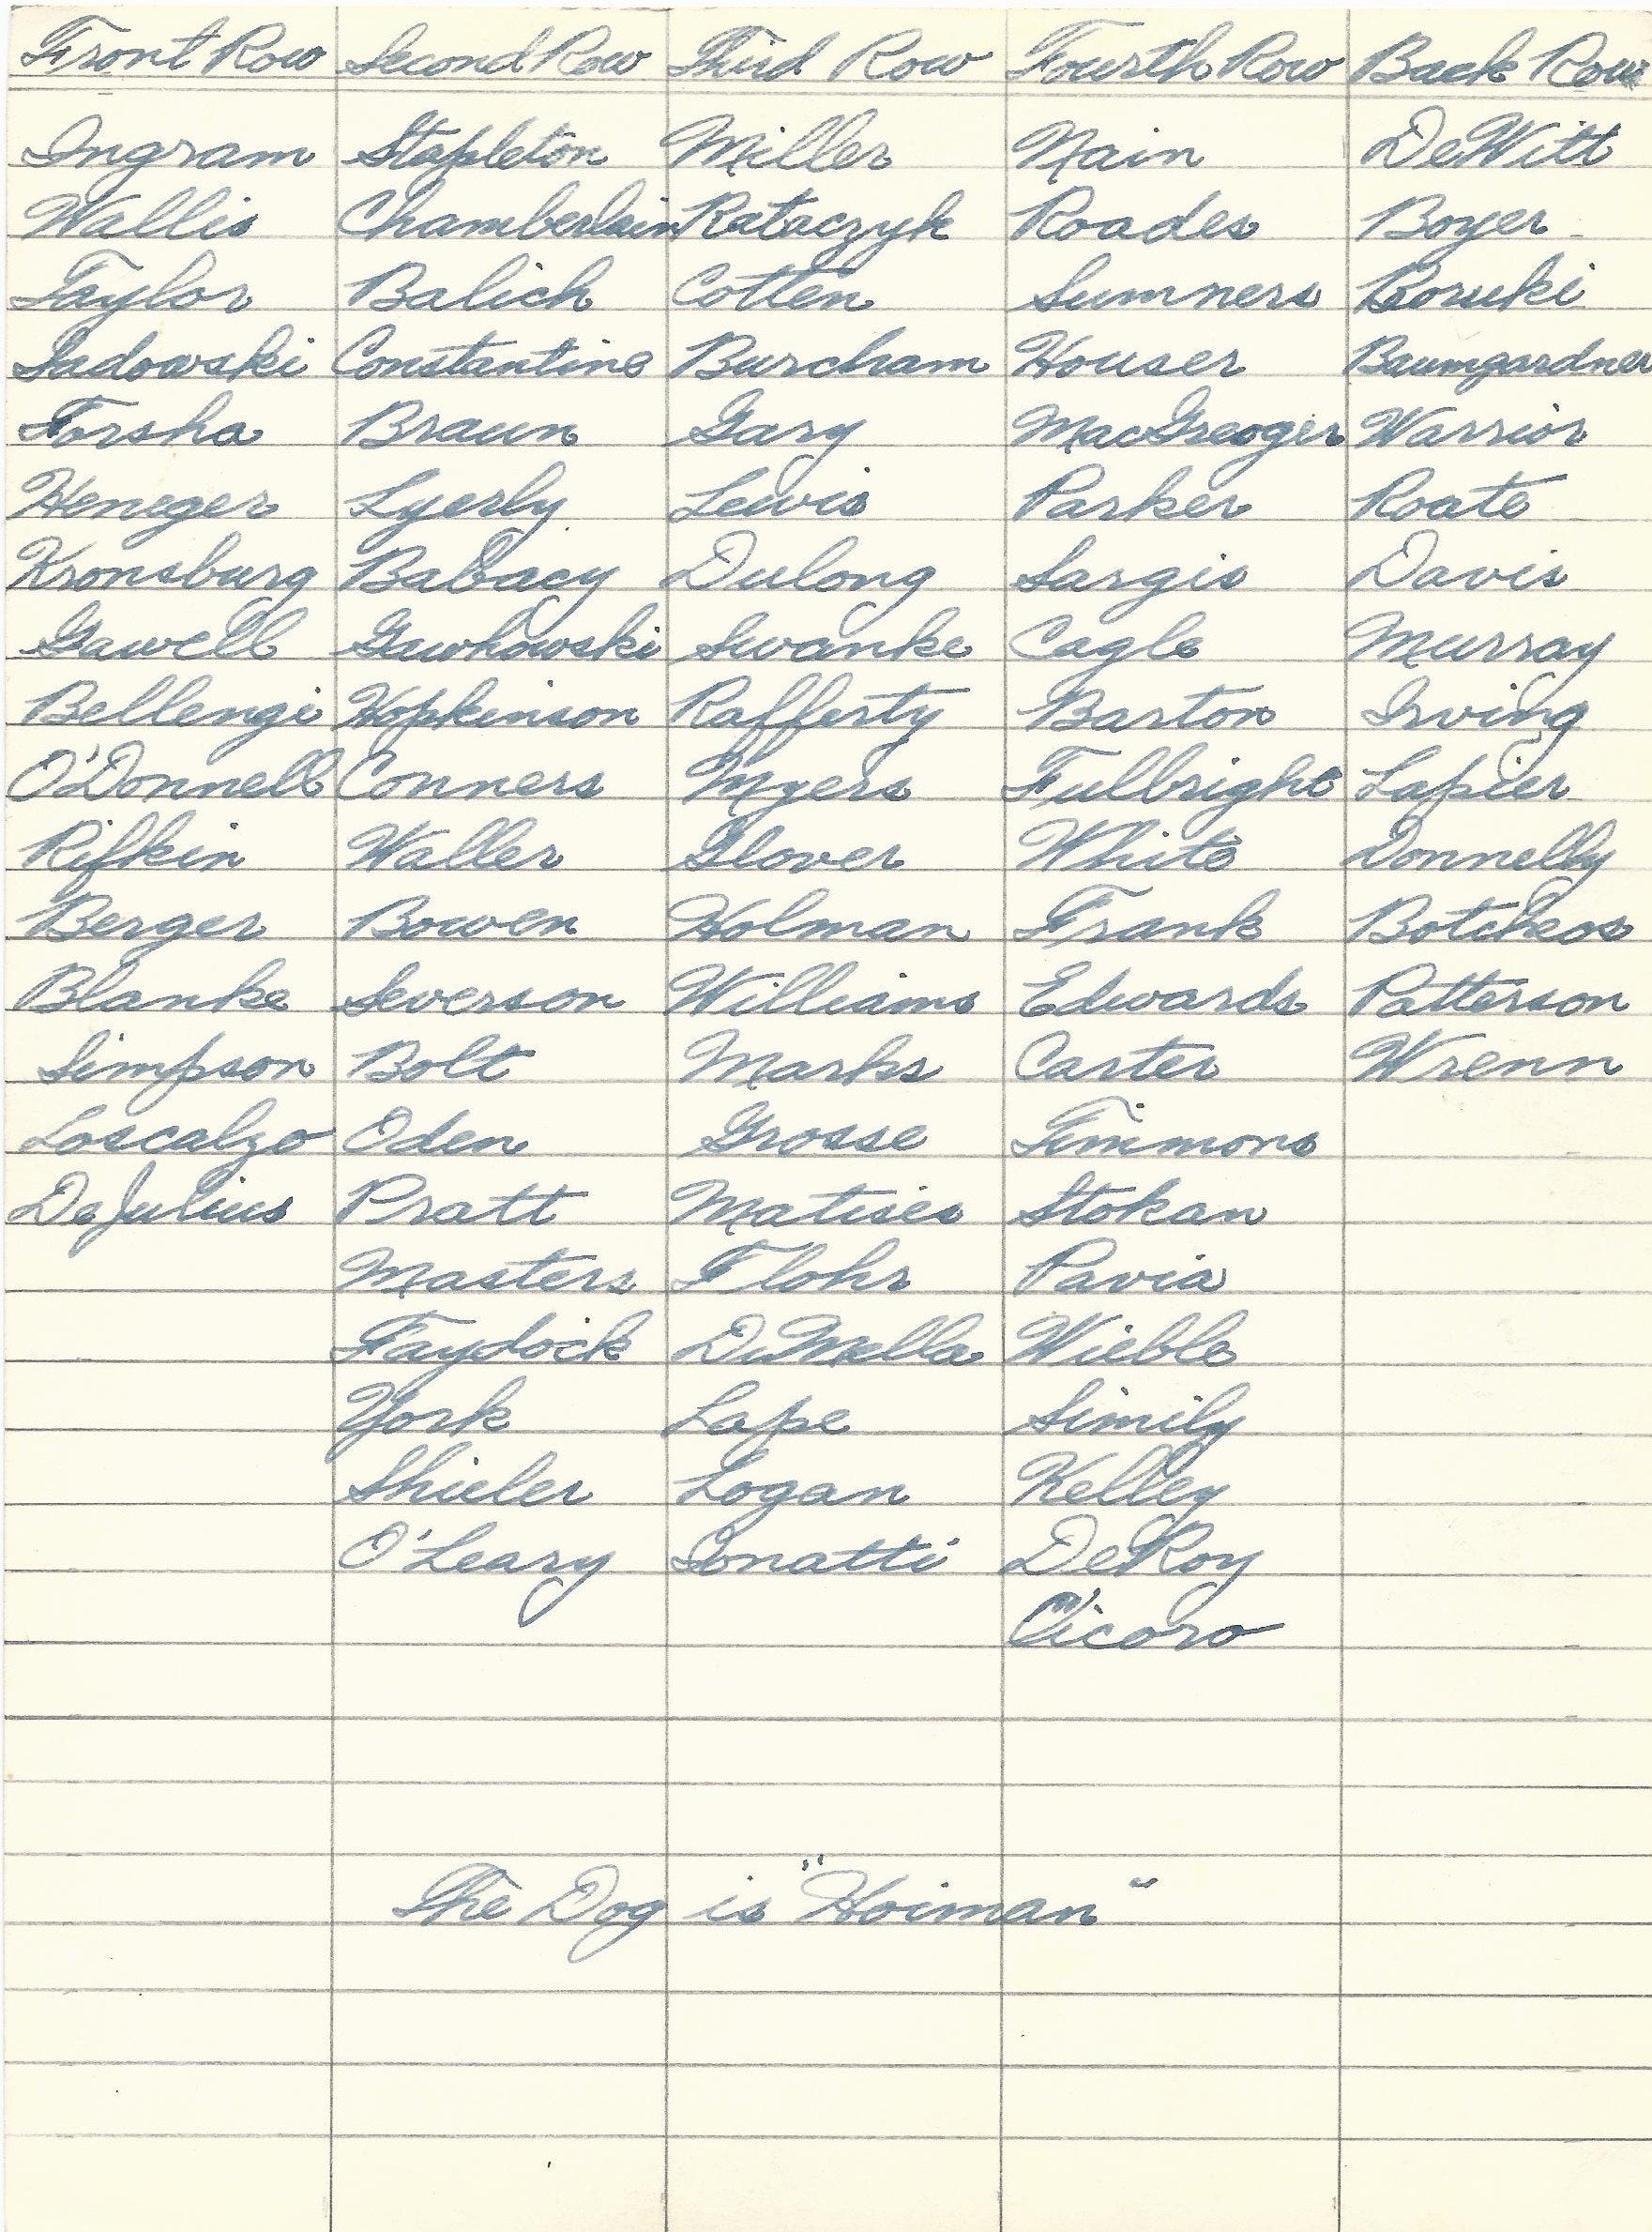 Front Row Second Row Third Row Fourth Row Back Row
Ingram Stapleton Miller Nain DeWitt
Wallis Chamberlain Rataczyk Roades Boyer
Taylor Balich Cotten Sumners Boruki
Sadowski Constantine Burcham Houser Baumgardner
Forsha Braun Gary MacGreoger Warrior
Heneger Lyerly Lewis Parker Roate
Kronsburg Babacy Dulong Sargis Davis
Gawell Swanke Cagle Murray
Bellengi Hopkinson Rafferty Barton Irving
O'Donnell Conners Myers Fullbright Lapier
Rifkin Waller Glover White Donnelly
Berger Bowen Holman Frank
Blanke Severson Williams Edwards Patterson
Simpson Bolt Marks Carter Wrenn
Loscalzo Oden Grosse Timmons
DeJulius Pratt Matises Stokan
Masters Flohr Pavia
Faydock DiMella Wieble
York Lape Simily
Shieler Logan Kelley
O'Leary DeRoy
Cicoro
The Dog is "Hoiman"